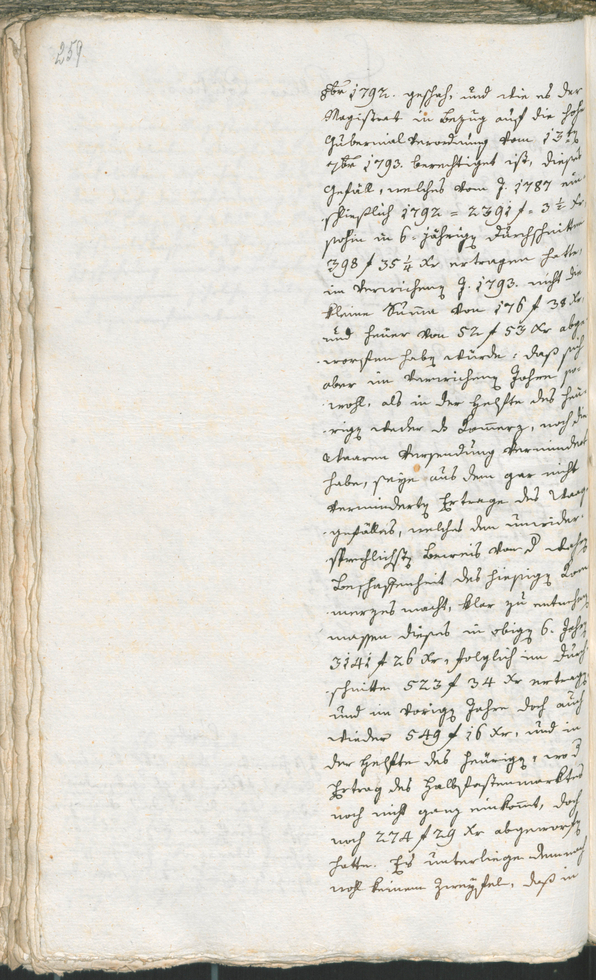 259.
8br 1792. geschah, und wie es der
Magistrat in Bezug auf die hohe
Gubernialverordnung vom 13ten
7br 1793. berechtiget ist, dieses
Gefäll, welches vom J. 1787 ein
schließlich 1792 = 2391 f = 3 1/2 Xr
sohin in 6. jährigen Durchschnitte
398 f 35 1/4 Xr ertragen hatte,
im verwichenen J. 1793. nicht die
kleine Summa von 176 f 38 Xr.
und heuer von 52 f 53 Xr abge
worfen haben würde: daß sich
aber im verwichenen Jahre so-
wohl, als in der Helfte des heu-
rigen weder des Commerz, noch die
Waaren Versendung vermindert
habe, seye aus dem gar nicht
verminderten Ertrage des Waag
gefälles, welches den unwider-
sprechlichsten Beweis von d
Beschaffenheit des hiesigen Com
merzes macht, klar zu entnehmen
massen dieses in obigen 6. Jahren
3141 f 26 Xr, folglich im Durch
schnitte 523 f 34 Xr ertragen
und im vorigen Jahre doch auch
wieder 549 f 16 Xr, und in
der Helfte des heurigen, wo d
Ertrag des Halbfastenmarktes
noch nicht ganz einkommt, doch
noch 274 f 29 Xr abgeworfen
hatte. Es unterliege demnach
wohl keinem Zweyfel, daß in